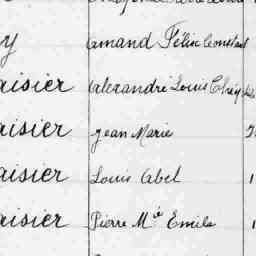 y Amand Félix Constant
aisier Alexandre Louis
aisier Jean Marie
aisier Louis Abel
aisier Pierre Mie Emile